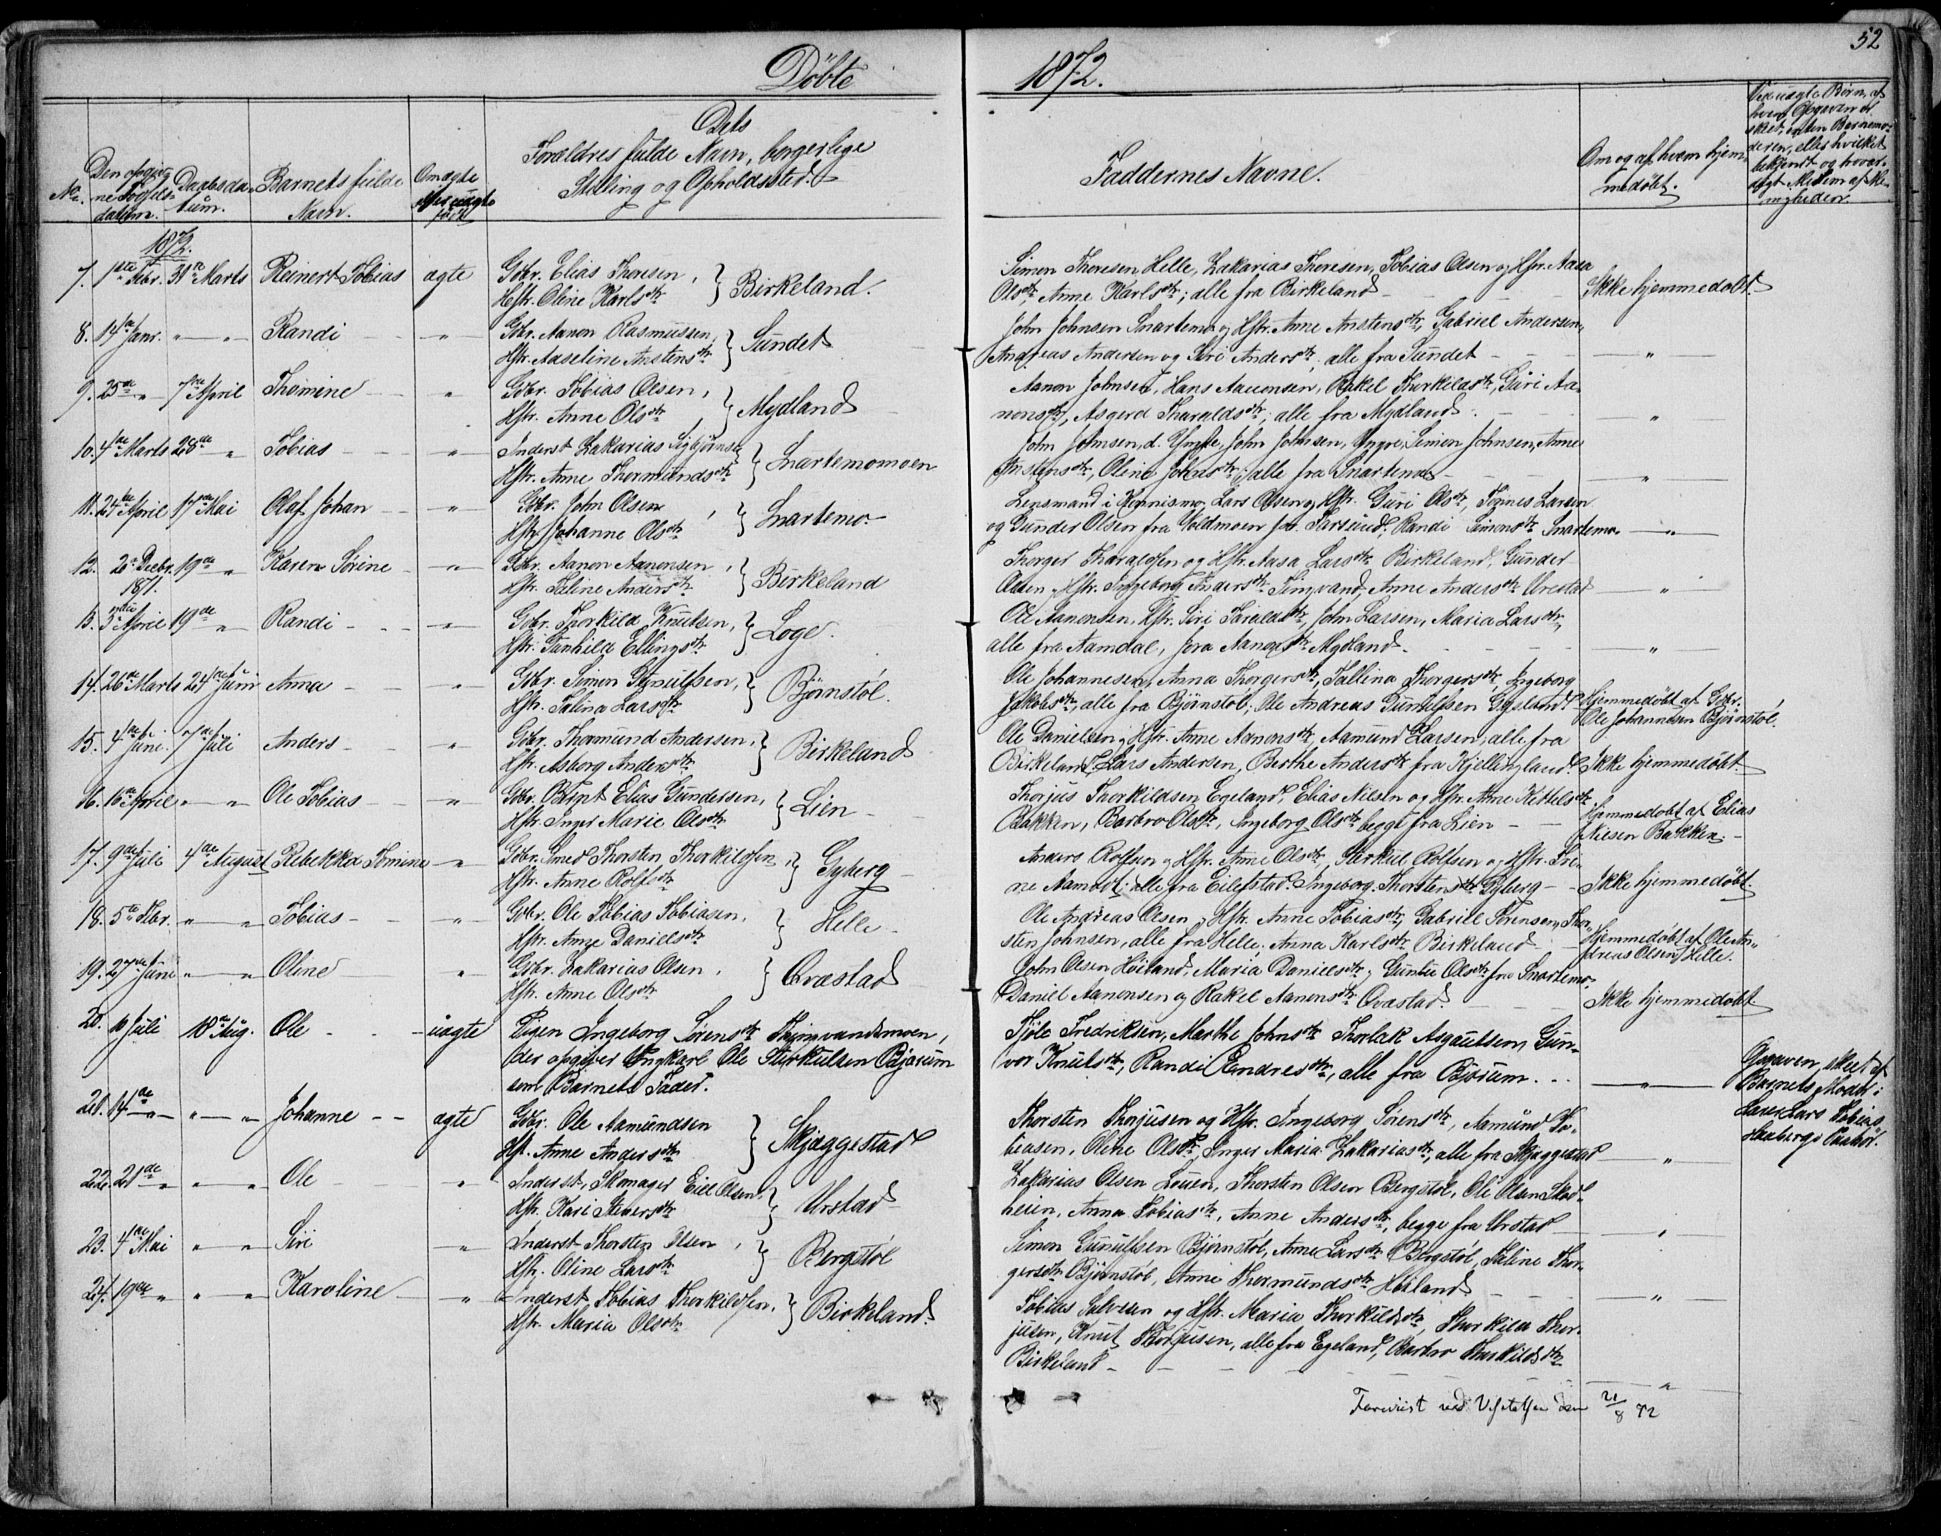 52
Døbte 1872.
No. Den opgivne Fødselsdatum. Daabsdatum. Barnets fulde Navn. Om ægte eller uægte født
Dets Forældres fulde Navn, borgerlige Stilling og Opholdssted.
Faddernes Navne.
Om og af hvem hjemmedøbt.
Ved uægte Børn, af hvem Opgaven er skeet, enten Barnemoderen, eller hvilket bekjendt og troværdigt Medlem af Menigheden.
1872.
7. 1ste Febr. 31te Marts Reinert Tobias ægte Gbr. Elias Thoresen, Birkeland.
Hstr. Oline Karlsdtr
Simon Thoresen Helle, Zakarias Thoresen, Tobias Olsen og Hstr. Aasa
Olsdtr Anne Karlsdtr; alle fra Birkeland Ikke hjemmedøbt.
8. 14de Janr. " " Randi " Gbr. Aanon Rasmussen, Sundet
Hstr. Aaseline Anstensdtr
John Johnsen Snartemo og Hstr. Anne Anstensdtr, Gabriel Andersen,
Andreas Andersen og Siri Andersdtr, alle fra Sundet "
9. 25de " 7de April Thomine " Gbr. Tobias Olsen, Mydland
Hstr. Anne Olsdtr
Aanon Johnsen, Hans Aanonsen, Rakel Thorkildsdtr, Guri Aa-
nonsdtr, Asgerd Tharaldsdtr, alle fra Mydland. "
10. 4de Marts 28de " Tobias " Inderst Zakarias Sigbjørnsen Snartemomoen
Hstr. Anne Thormundsdtr
John Johnsen, d. Yngre, John Johnsen, Yngre, Simon Johnsen, Anne
Anstensdtr, Oline Johnsdtr; alle fra Snartemo "
11. 24de April 17de Mai Olaf Johan " Gbr. John Olsen, Snartemo.
Hstr. Johanne Olsdtr
Lensmand i Kvinesmo, Lars Olsen og Hstr. Guri Olsdtr, Tønnes Larsen
og Gunder Olsen fra Voldmoen Randi Simonsdtr Snartemo. "
12. 20. Decbr. 1871. 19de " Karen Sørine " Gbr. Aanon Aanonsen, Birkeland
Hstr. Seline Andersdtr
Thorger Tharaldsen og Hstr. Aasa Larsdtr Birkeland, Gunder
Olsen, Hstr. Ingeborg Andersdtr Tingvand, Anne Andersdtr Urestad "
13. 3die April 19de " Randi " Gbr. Thorkild Knutsen, Loge.
Hstr. Gunhild Ellingsdtr
Ole Aanonsen, Hstr. Siri Taraldsdtr, John Larsen, Maria Larsdtr,
alle fra Aamdal, Jora Aanonsdtr Mydland. "
14. 26de Marts 24de Juni Anna " Gbr. Simon Gunulfsen, Bjørnstøl.
Hstr. Salina Larsdtr
Ole Johannesen, Anna Thorgersdtr, Sallina Thorgersdtr, Ingeborg
Jakobsdtr; alle fra Bjørnstøl; Ole Andreas Gunulfsen Gysland. Hjemmedøbt af Gbr.
Ole Johannesen Bjørnstøl.
15. 4de Juni. 7de Juli Anders " Gbr. Thormund Andersen, Birkeland
Hstr. Asborg Andersdtr
Ole Danielsen, Hstr. Anne Aanonsdtr, Aamund Larsen, alle fra
Birkeland, Lars Andersen, Berthe Andersdtr fra Kjellingland. Ikke hjemmedøbt.
16. 16de April " " Ole Tobias " Gbr. Elias Gundersen, Lien
Hstr. Inger Marie Olsdtr
Thorjus Thorkildsen Egeland, Elias Nilsen og Hstr. Anne Kettelsdtr
Bakken, Barbro Olsdtr, Ingeborg Olsdtr begge fra Lien Hjemmedøbt af Elias
Nilsen Bakken.
17. 9de Juli 4de August Rebekka Tomine " Gbr. Smed Thorsten Thorkildsen, Gyberg
Hstr. Anne Rolfsdtr
Anders Rolfsen og Hstr. Anne Olsdtr, Sterkul Rolfsen og Hstr. Tri-
ne Aamodt; alle fra Eilefstad. Ingeborg Thorstensdtr Gyberg Ikke hjemmedøbt.
18. 5te Fbr. " " Tobias " Gbr. Ole Tobias Tobiasen, Helle
Hstr. Anne Danielsdtr
Ole Andreas Olsen, Hstr. Anne Tobiasdtr, Gabriel Sørensen, Thor-
sten Johnsen, alle fra Helle. Anna Karlsdtr Birkeland Hjemmedøbt af Ole An-
dreas Olsen Helle.
19. 27de Juni " " Oline " Gbr. Zakarias Olsen, Ovrestad
Hstr. Anne Olsdtr
John Olsen Høiland, Maria Danielsdtr, Gunda Olsdtr fra Snartemo.
Daniel Aanonsen og Rakel Aanonsdtr Ovrestad. Ikke hjemmedøbt
20. 10 Juli 18de Aug. Ole uægte Pigen Ingeborg Sørensdtr Thingvandsmoen,
der opgiver Ungkarl Ole Stirkulsen Bjørum
som Barnets Fader.
Tjøle Fredriksen, Marthe Johnsdtr Thorlak Asgautsen, Gun-
vor Knutsdtr, Randi Endresdtr, alle fra Bjørum. "
Opgaven skeet af
Barnets Moder i
Lars Tobias
21. 14de " " " Johanne ægte Gbr. Ole Aamundsen Skjæggestad
Hst. Anne Andersdtr
Thorsten Thorjusen og Hstr. Ingeborg Sørensdtr, Aamund To-
biasen, Oline Olsdtr, Inger Maria Zakariasdtr, alle fra Skjæggestad "
22. 21de " " " Ole " Inderst, Skomager Eill Olsen, Urstad
Hstr. Kari Siversdtr
Zakarias Olsen Louen, Thorsten Olsen Bergstøl, Ole Olsen Stod-
heien, Anna Tobiasdtr, Anne Andersdtr, begge fra Urstad "
23. 4de Mai " " Siri " Inderst Thorsten Olsen, Bergstøl
Hstr. Oline Larsdtr
Simon Gunulfsen Bjørnstøl, Anne Larsdtr Bergstøl, Saline Thor-
gersdtr Bjørnstøl, Anne Thormundsdtr Høiland "
24. 19de " " " Karoline " Inderst Tobias Thorkildsen, Birkeland.
Hstr. Maria Olsdtr
Tobias Salvesen og Hstr. Maria Thorkildsdtr, Thorkild Thor-
jusen, Knut Thorjusen, alle fra Egeland, Barbro Thorkildsdtr
Birkeland "
Foreviist ved Visitatsen den 21/8 72